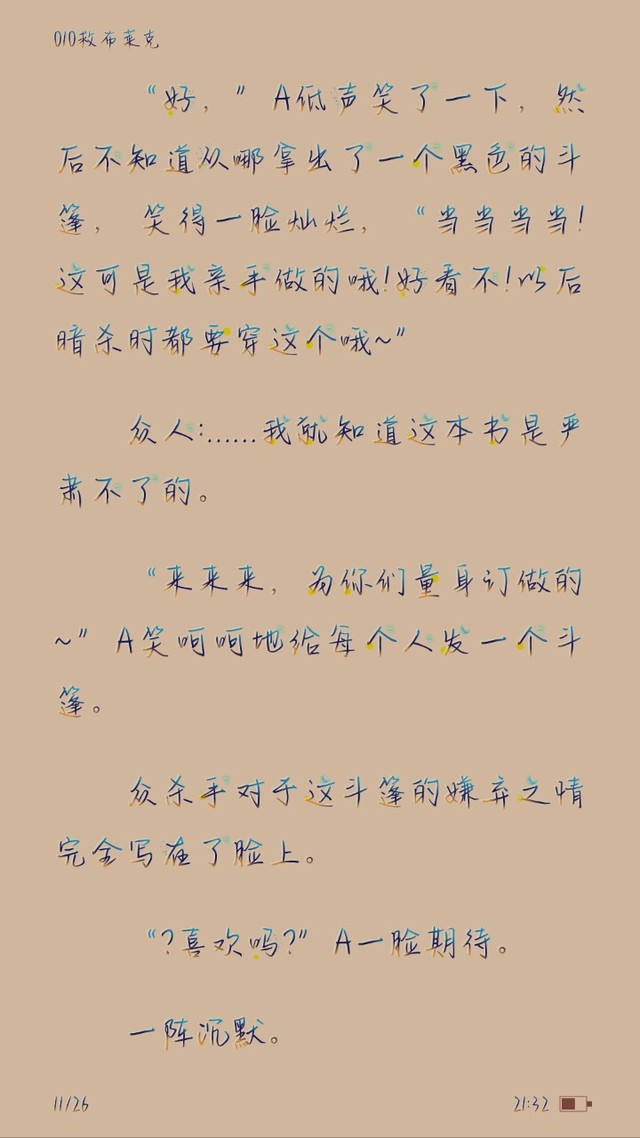 010救布莱克
“好，”A低声笑了一下，然
后不知道从哪拿出了一个黑色的斗
篷，笑得一脸灿烂，“当当当当！
这可是我亲手做的哦！好看不！以后
暗杀时都要穿这个哦~”
众人：……我就知道这本书是严
肃不了的。
“来来来，为你们量身订做的
~”A笑呵呵地给每个人发一个斗
篷。
众杀手对于这斗篷的嫌弃之情
完全写在了脸上。
“？喜欢吗？”A一脸期待。
一阵沉默。
11/26
21:32